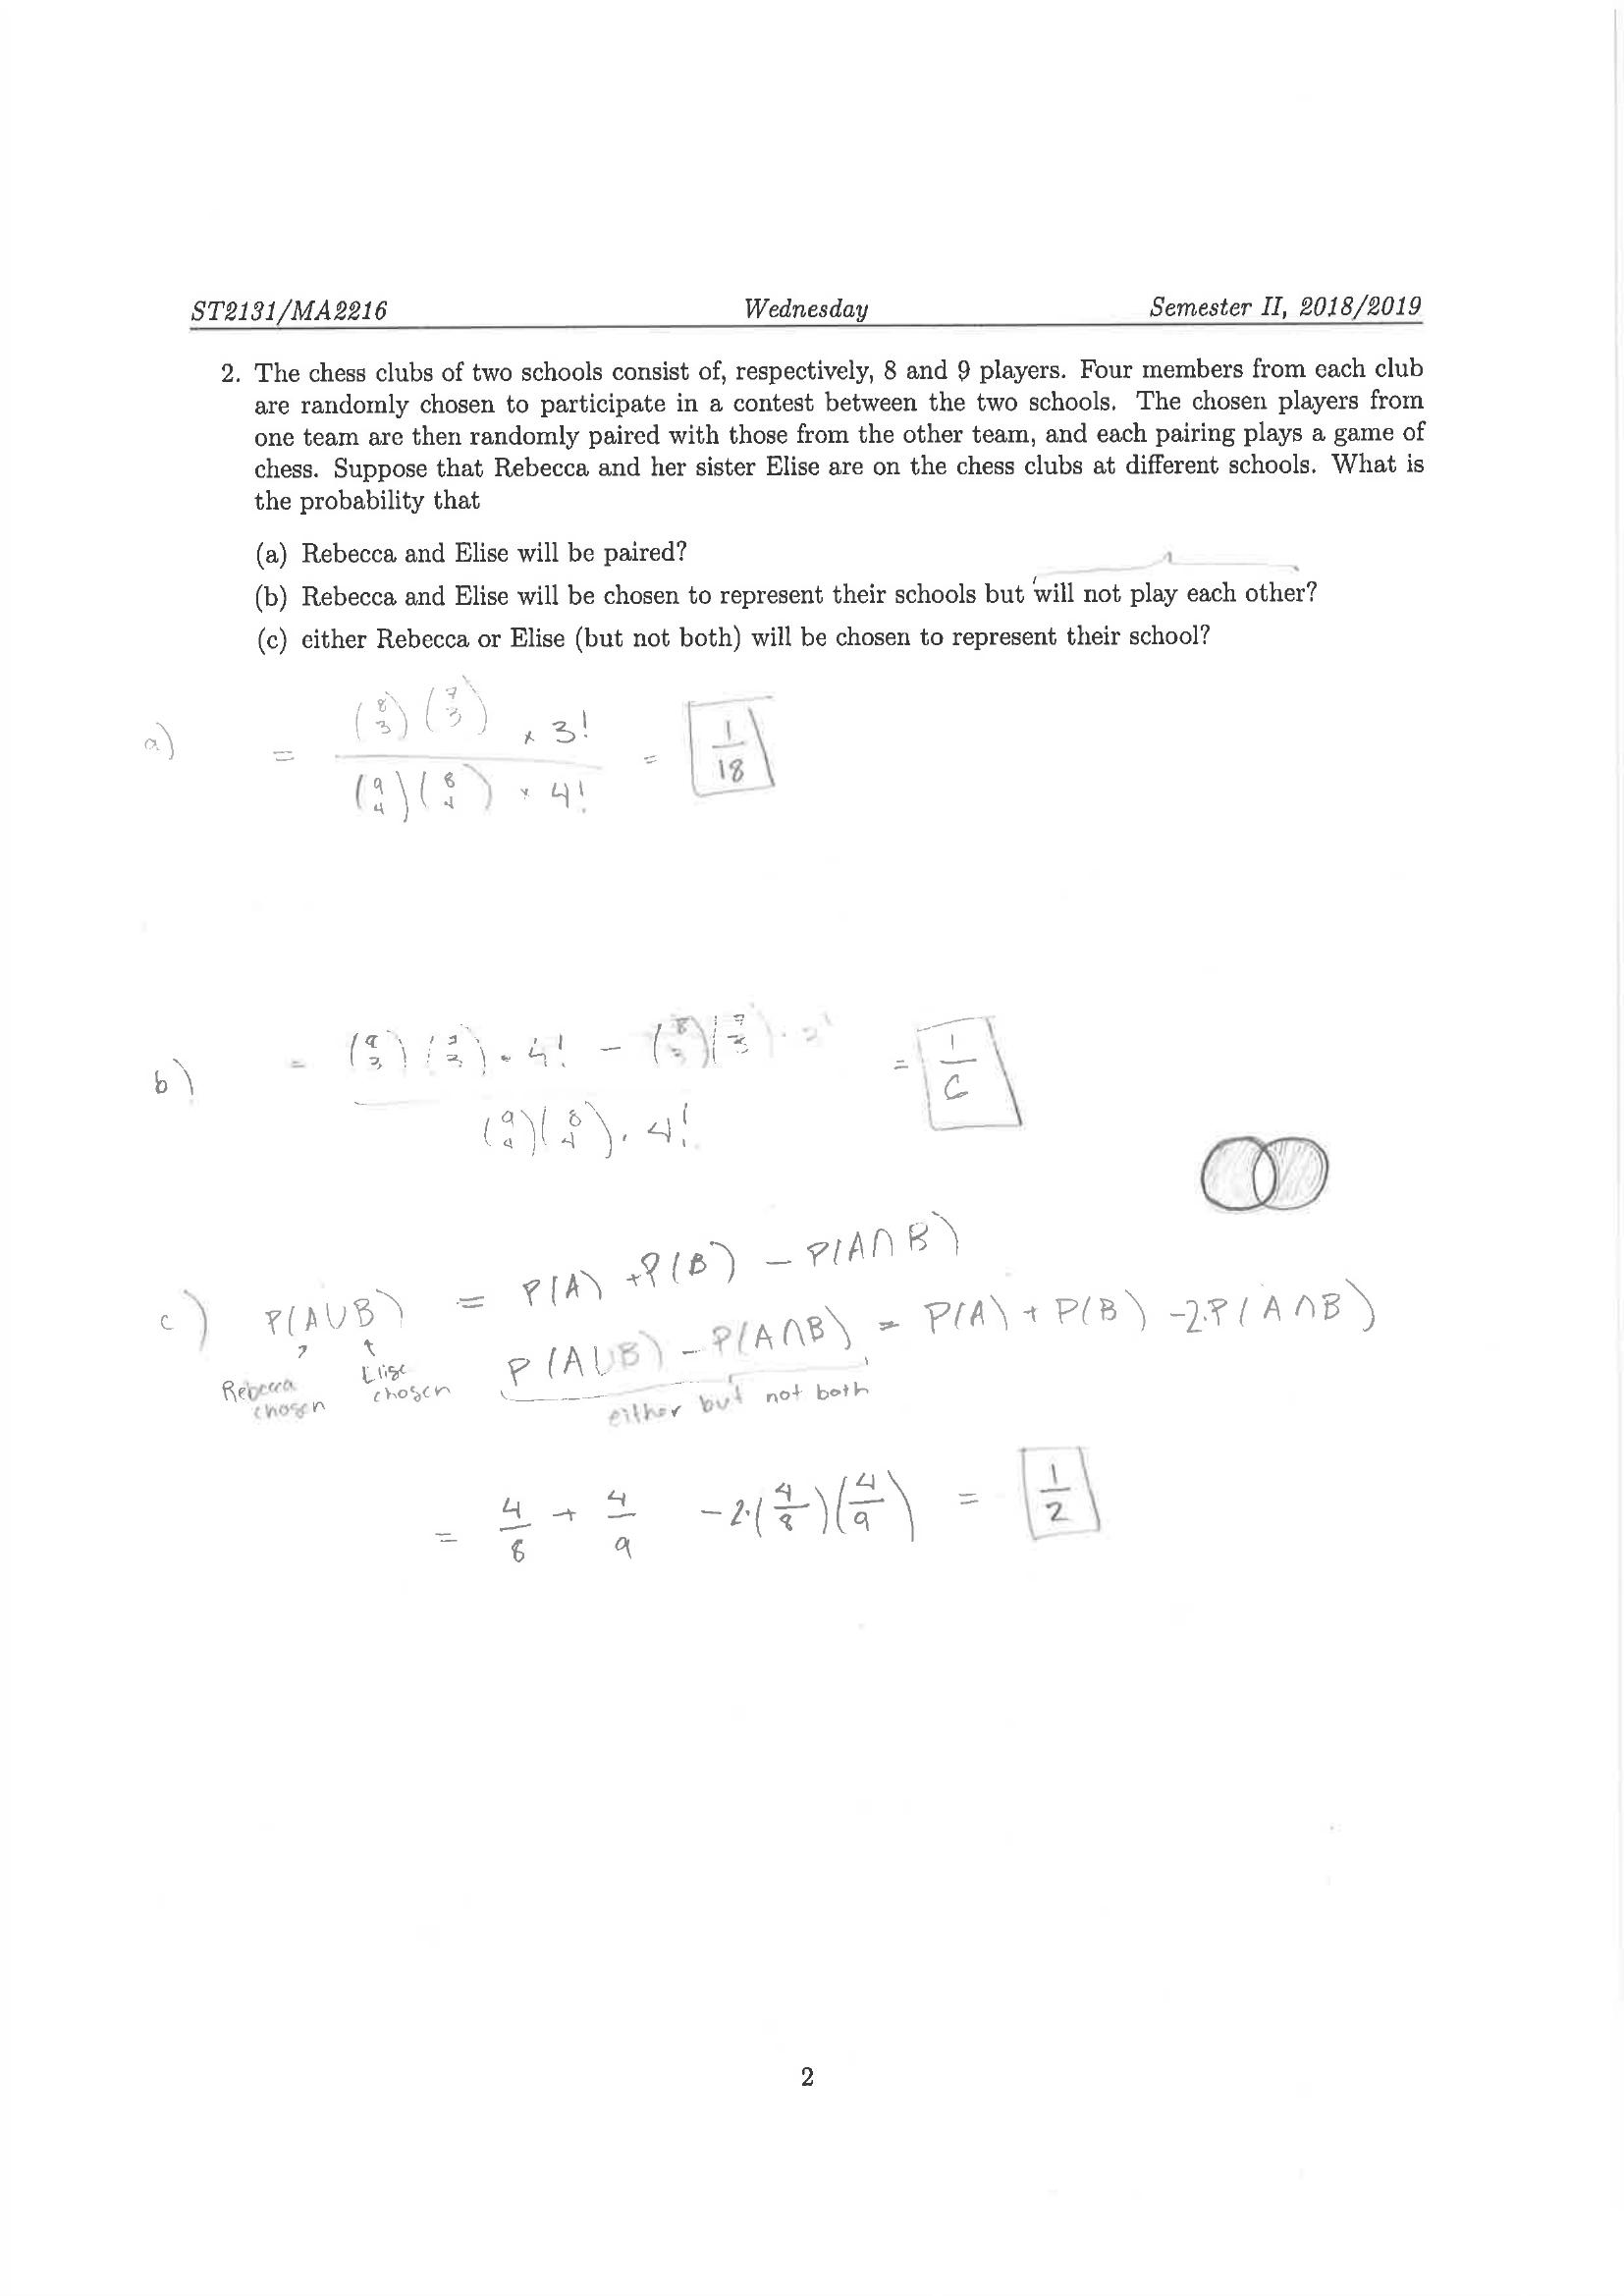 ST2131/MA2216 Wednesday Semester II, 2018/2019
2. The chess clubs of two schools consist of, respectively, 8 and 9 players. Four members from each club
are randomly chosen to participate in a contest between the two schools. The chosen players from
one team are then randomly paired with those from the other team, and each pairing plays a game of
chess. Suppose that Rebecca and her sister Elise are on the chess clubs at different schools. What is
the probability that
(a) Rebecca and Elise will be paired?
(b) Rebecca and Elise will be chosen to represent their schools but will not play each other?
(c) either Rebecca or Elise (but not both) will be chosen to represent their school?
a) = (8 3)(7 3) × 3! / (9 4)(8 4) × 4! = 1/18
b) = · 4! − (8 3)(7 3) · / (9 4)(8 4) · 4! = 1/6
c) P(A∪B) = P(A) + P(B) − P(A∩B)
P(A∪B) − P(A∩B) = P(A) + P(B) − 2·P(A∩B)
Rebecca chosen
Elise chosen
either but not both
= 4/8 + 4/9 − 2·(4/8)(4/9) = 1/2
2